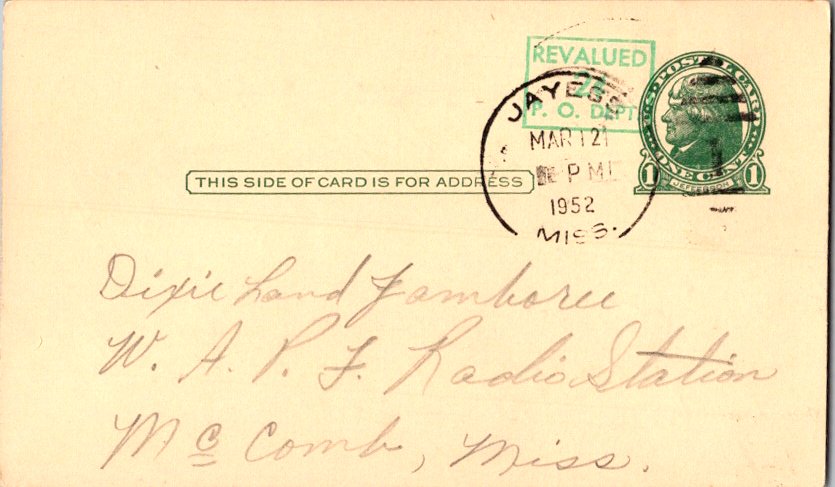 REVALUED
2¢
P. O. DEPT
U.S. POSTAL CARD
JAYESS
MAR 12
PM
1952
MISS.
1 JEFFERSON 1
ONE CENT
THIS SIDE OF CARD IS FOR ADDRESS
Dixie Land Jamboree
W. A. P. F. Radio Station
Mc Comb, Miss.